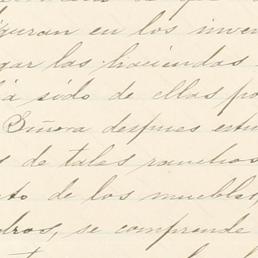 guran en los inven
gar las haciendas
a sido de ellas po
Señora despues estu
s de tales ranchos
to de los muebles,
dros, se comprende